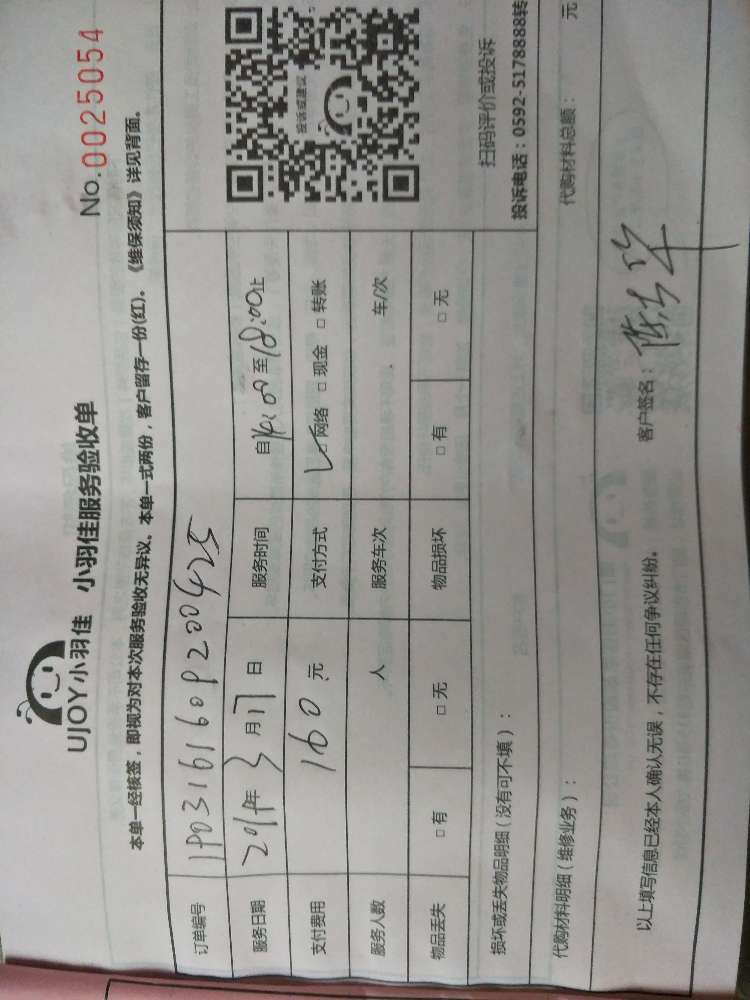 UJOY小羽佳 小羽佳服务验收单
No.0025054
本单一经核签，即视为对本次服务验收无异议。本单一式两份，客户留存一份(红)。《维保须知》详见背面。
订单编号 1903161609200425
服务日期 2019年3月17日 服务时间 自14:00至18:00止
支付费用 160元 支付方式 ☑网络 □现金 □转账
服务人数 人 服务车次 车/次
物品丢失 □有 □无 物品损坏 □有 □无
投诉或建议
扫码评价或投诉
投诉电话：0592-5178888转
损坏或丢失物品明细（没有可不填）：
代购材料明细（维修业务）： 代购材料总额： 元
以上填写信息已经本人确认无误，不存在任何争议纠纷。 客户签名：